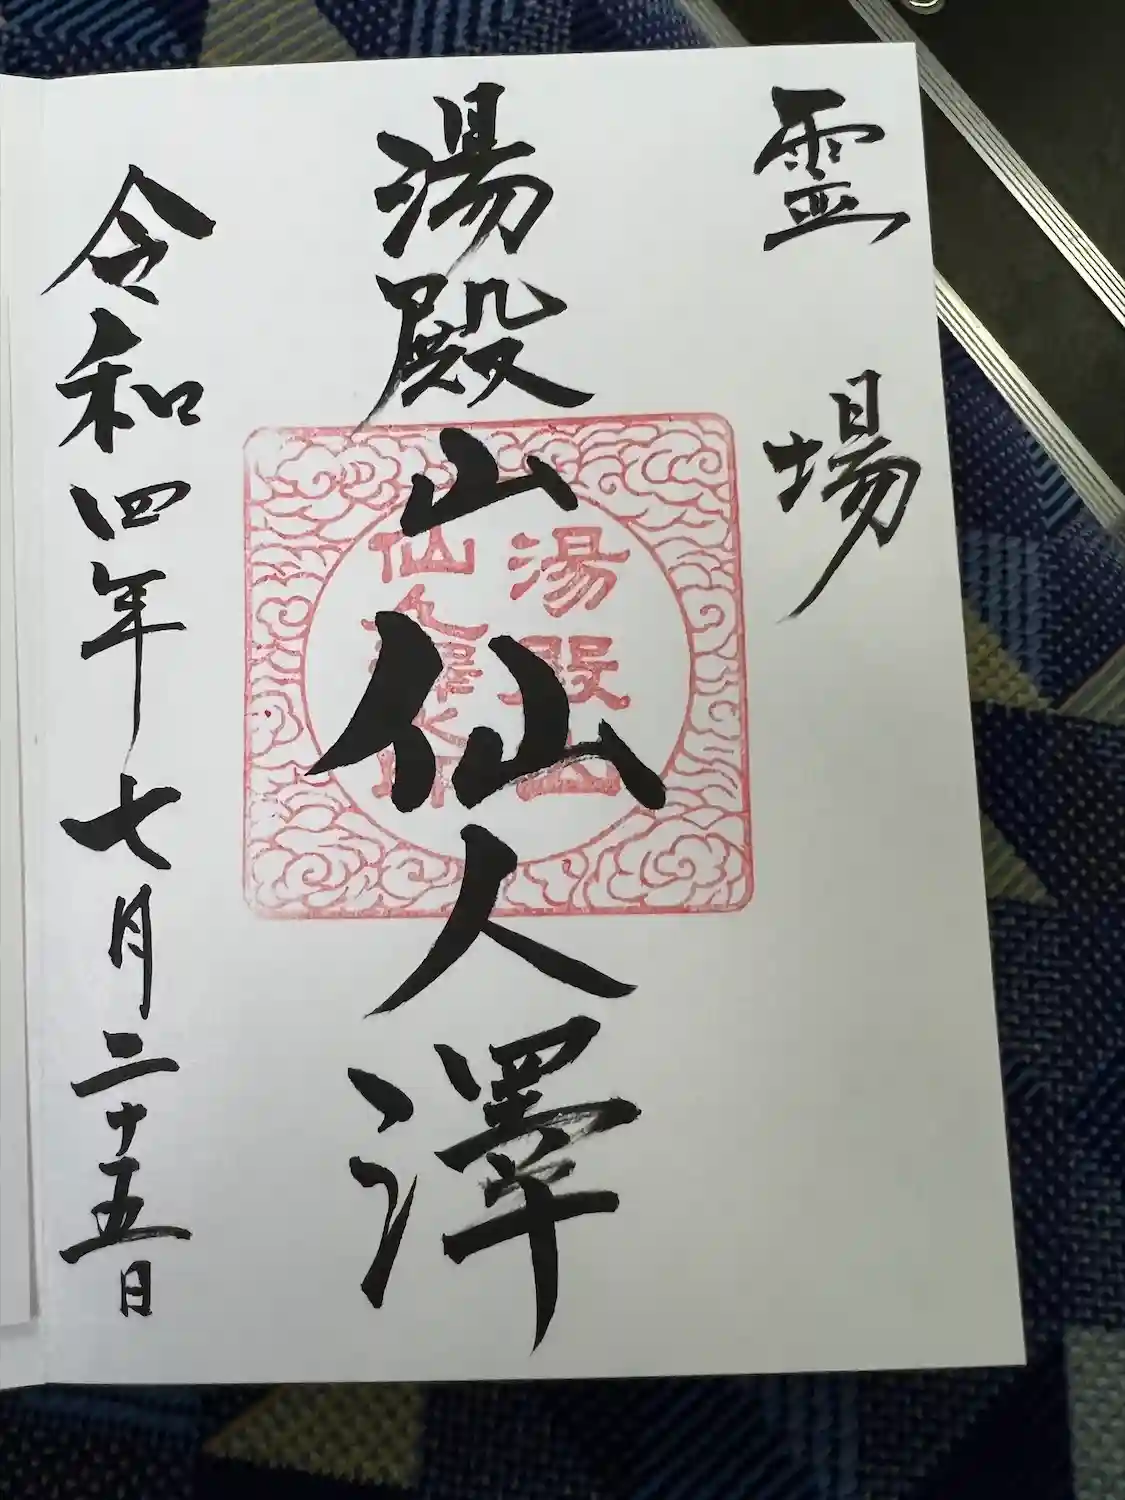 霊場
湯殿山仙人澤
令和四年七月二十五日
湯殿山
仙人澤之印